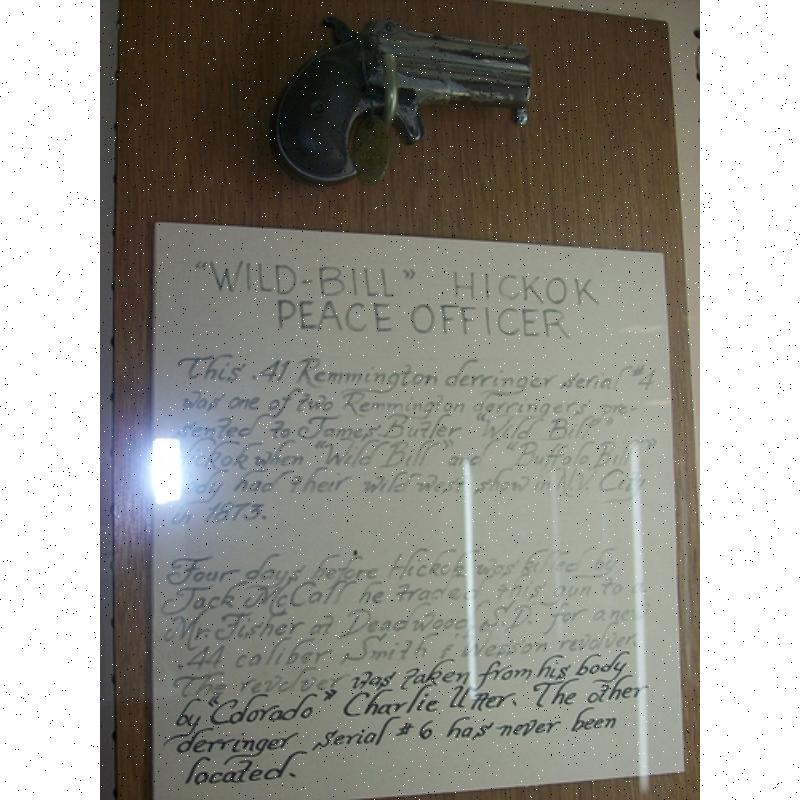 "WILD-BILL" HICKOK
PEACE OFFICER
This .41 Remmington derringer serial #4
was one of two Remmington derringers pre-
sented to James Butler "Wild Bill"
when "Wild Bill" and "Buffalo Bill"
had their wild west show in N.Y. City
in 1873.
Four days before Hickok was killed by
Jack McCall he traded this gun to a
Mr. Fisher at Deadwood S.D. for a new
.44 caliber Smith & Wesson revolver.
The revolver was taken from his body
by "Colorado" Charlie Utter. The other
derringer serial #6 has never been
located.